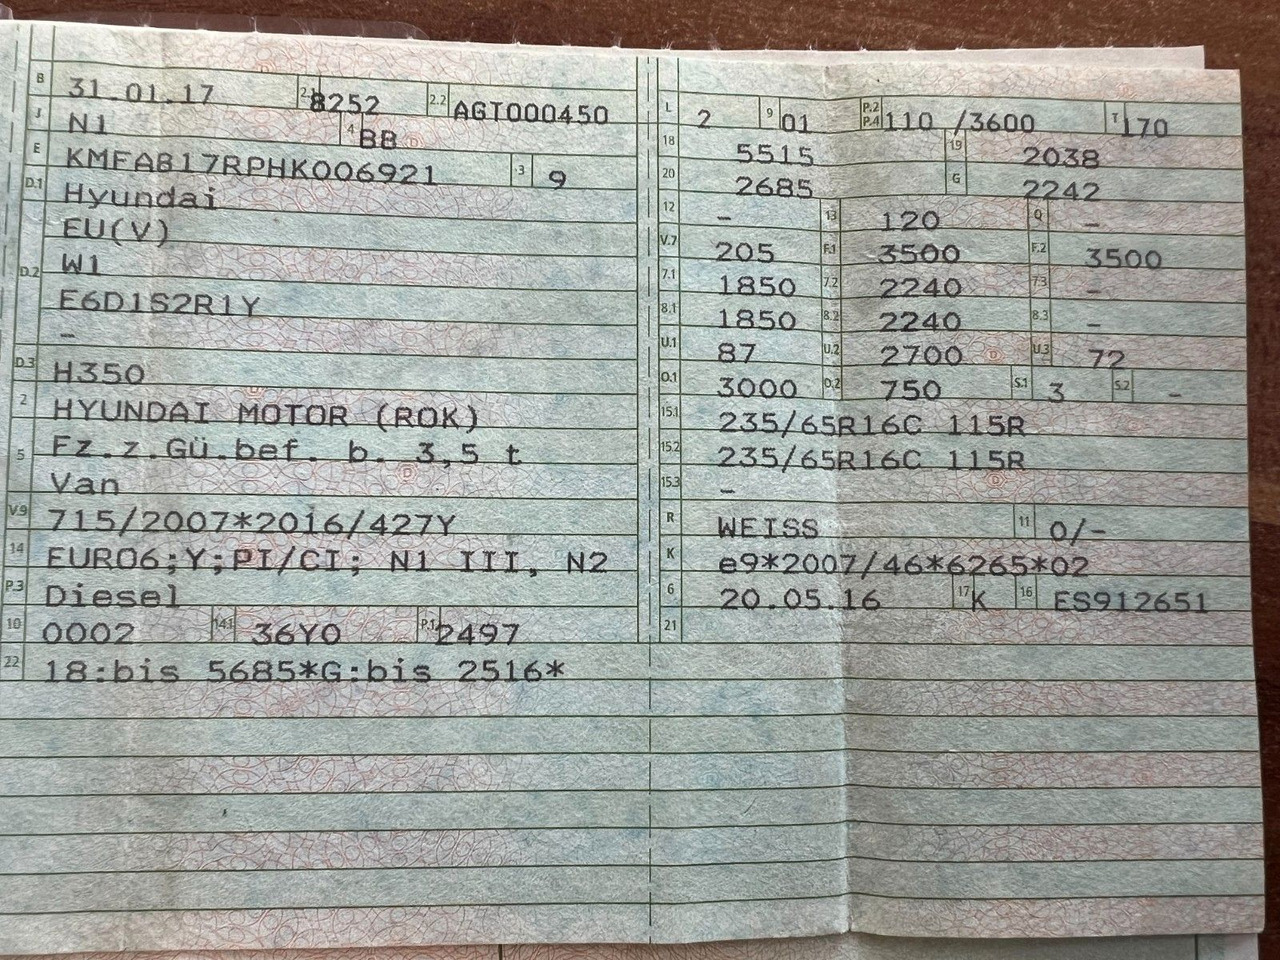 B 31.01.17 2.1 8252 2.2 AGT000450
J N1 4 BB
E KMFAB17RPHK006921 3 9
D.1 Hyundai
EU(V)
D.2 W1
E6D1S2R1Y
–
D.3 H350
2 HYUNDAI MOTOR (ROK)
5 Fz.z.Gü.bef. b. 3,5 t
Van
V.9 715/2007*2016/427Y
14 EURO6;Y;PI/CI; N1 III, N2
P.3 Diesel
10 0002 14.1 36Y0 P.1 2497
22 18:bis 5685*G:bis 2516*
L 2 9 01 P.2 P.4 110 /3600 T 170
18 5515 19 2038
20 2685 G 2242
12 – 13 120 Q –
V.7 205 F.1 3500 F.2 3500
7.1 1850 7.2 2240 7.3 –
8.1 1850 8.2 2240 8.3 –
U.1 87 U.2 2700 U.3 72
O.1 3000 O.2 750 S.1 3 S.2 –
15.1 235/65R16C 115R
15.2 235/65R16C 115R
15.3 –
R WEISS 11 0/-
K e9*2007/46*6265*02
6 20.05.16 17 K 16 ES912651
21